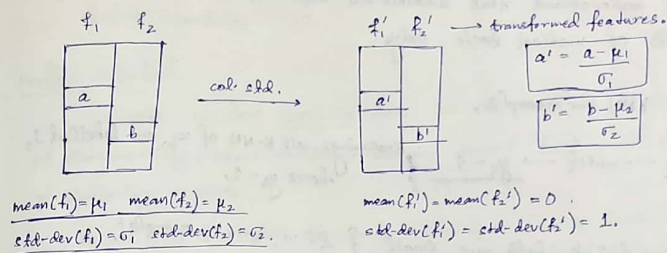 f₁ f₂
f₁' f₂' → transformed features.
a
b
col. std.
a'
b'
a' = (a - μ₁) / σ₁
b' = (b - μ₂) / σ₂
mean(f₁) = μ₁ mean(f₂) = μ₂
std-dev(f₁) = σ₁ std-dev(f₂) = σ₂.
mean(f₁') = mean(f₂') = 0.
std-dev(f₁') = std-dev(f₂') = 1.